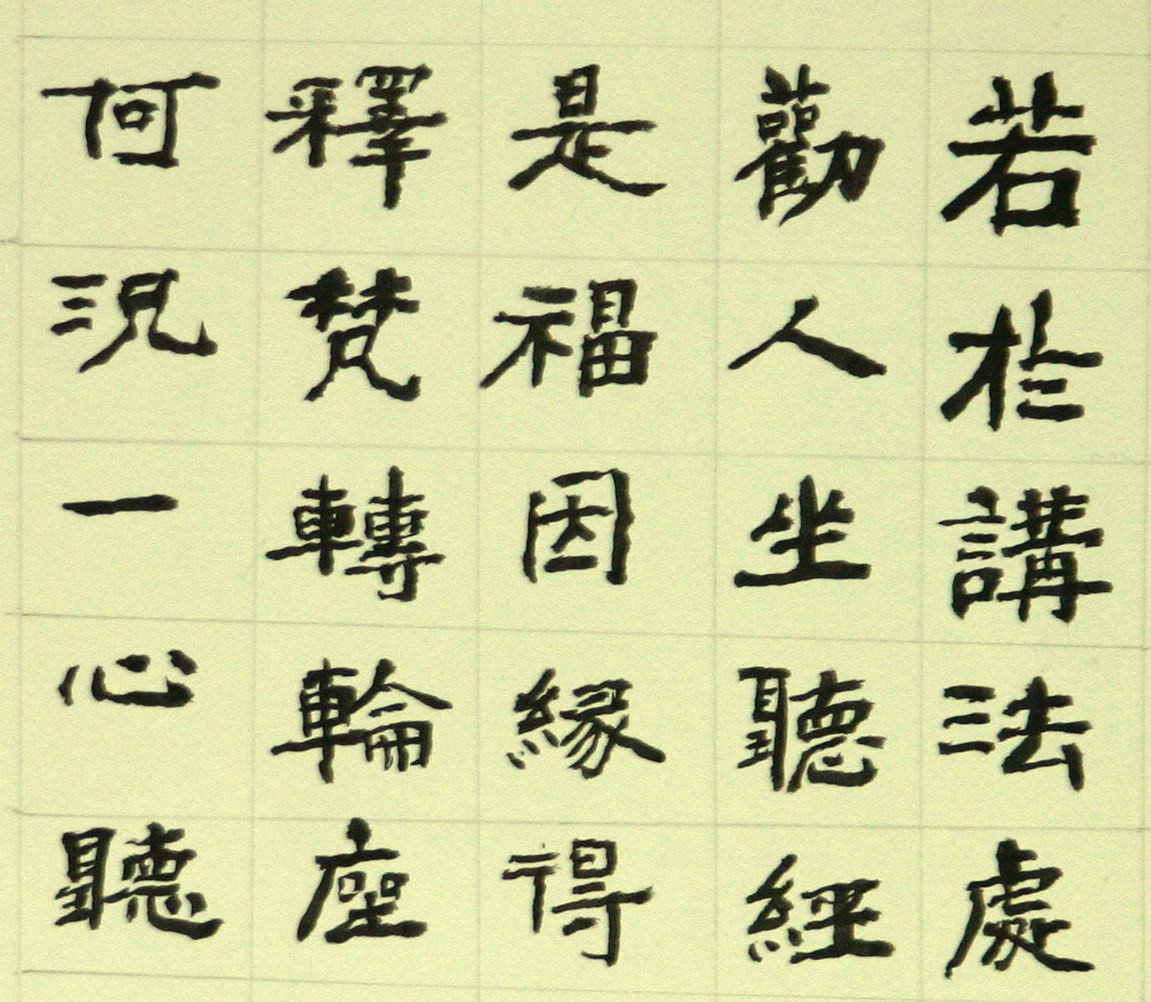 若於講法處
勸人坐聽經
是福因緣得
釋梵轉輪座
何況一心聽